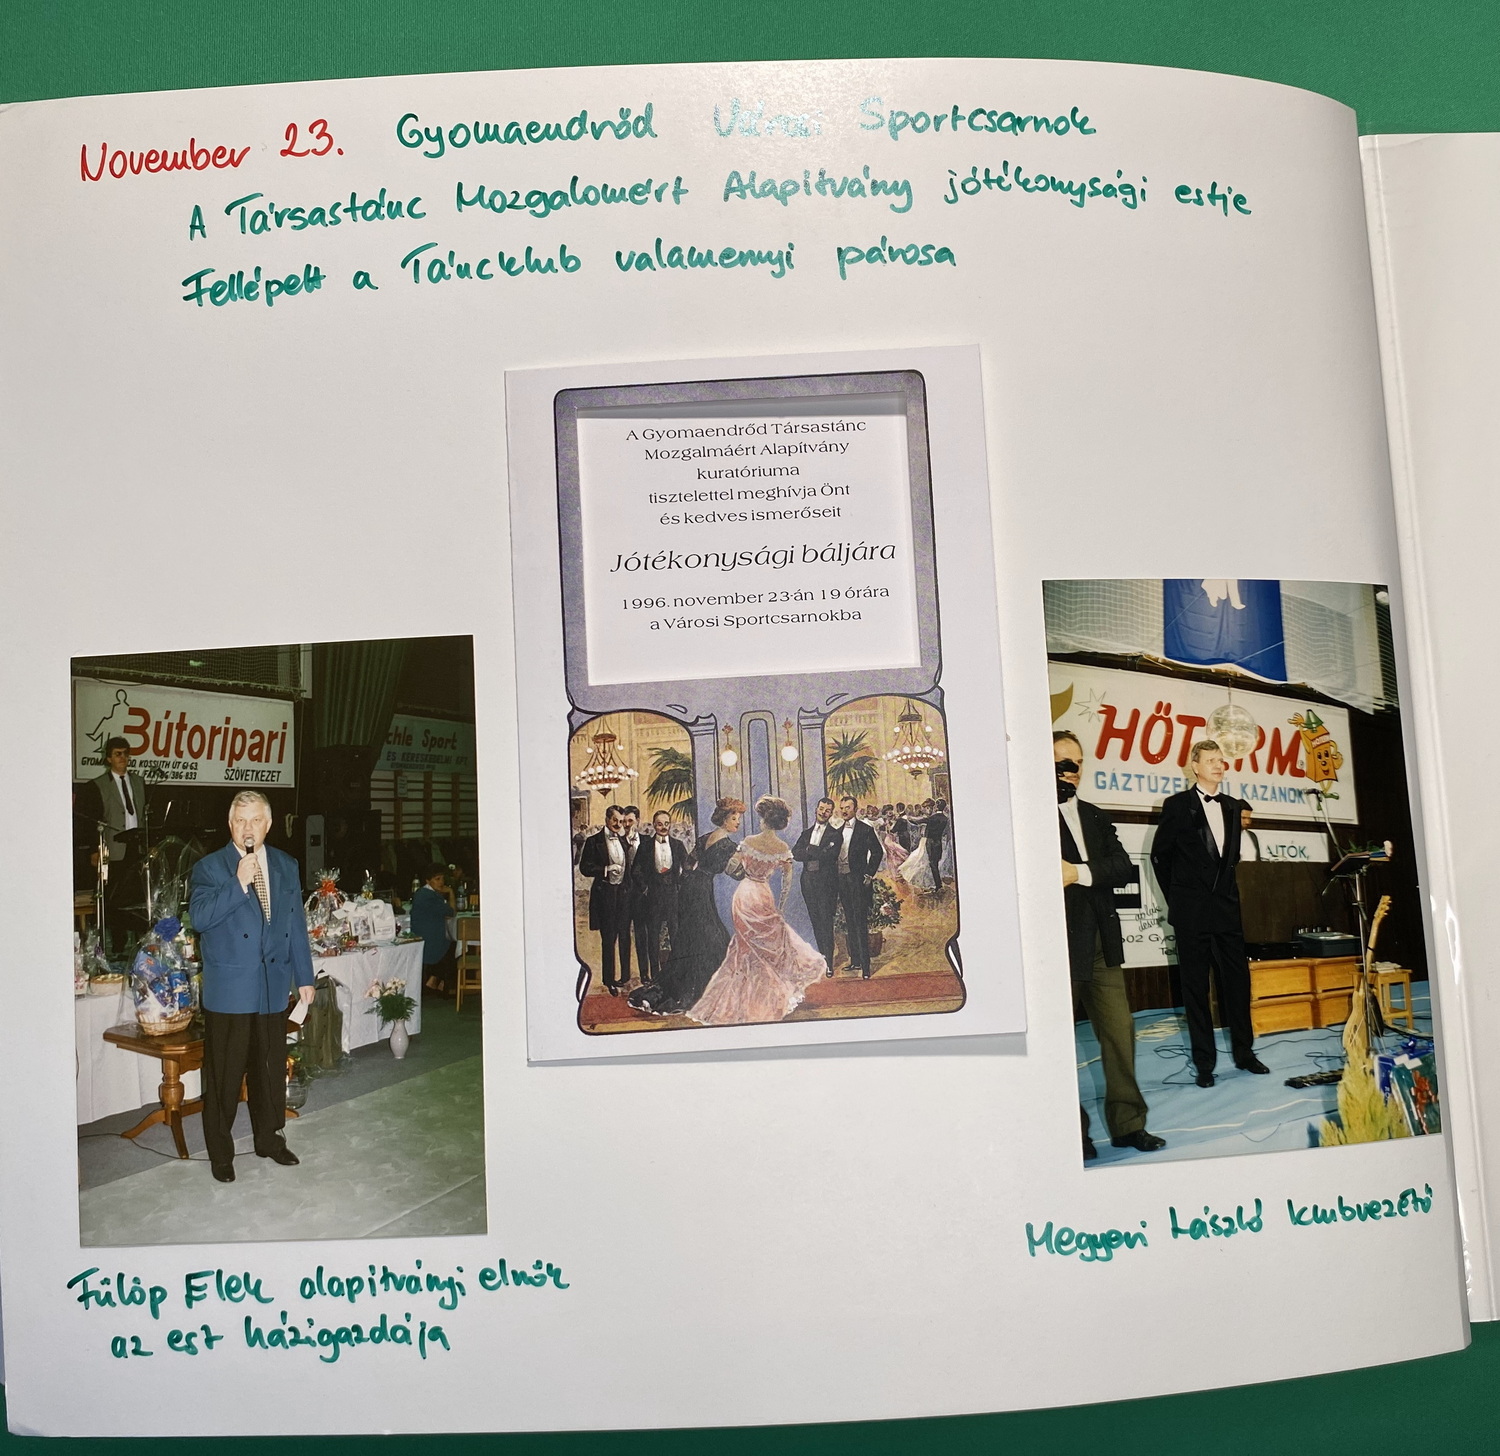 November 23. Gyomaendrőd Városi Sportcsarnok
A Társastánc Mozgalomért Alapítvány jótékonysági estje
Fellépett a Táncklub valamennyi párosa
A Gyomaendrőd Társastánc
Mozgalmáért Alapítvány
kuratóriuma
tisztelettel meghívja Önt
és kedves ismerőseit
Jótékonysági báljára
1996. november 23-án 19 órára
a Városi Sportcsarnokba
Bútoripari
KOSSUTH ÚT 61-63.
386-833 SZÖVETKEZET
chle Sport
ÉS KERESKEDELMI KFT.
HŐTERM
GÁZTÜZE KAZÁNOK
AJTÓK,
Fülöp Elek alapítványi elnök
az est házigazdája
Megyeri László klubvezető